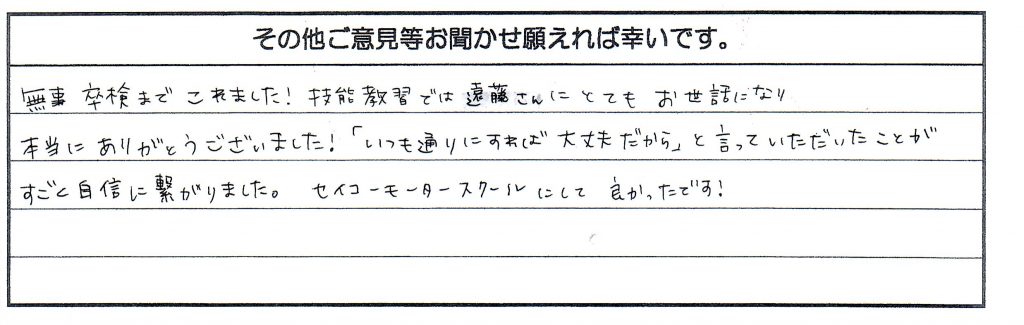 その他ご意見等お聞かせ願えれば幸いです。
無事 卒検まで これました！技能教習では 遠藤さんに とても お世話になり
本当に ありがとうございました！「いつも通りにすれば 大丈夫だから」と言っていただいたことが
すごく自信に繋がりました。 セイコーモータースクールにして 良かったです！